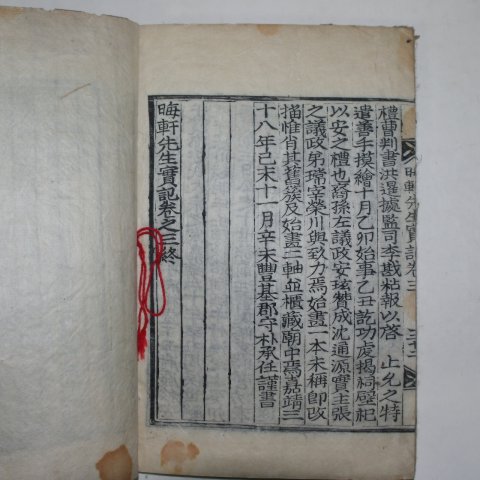 禮曹判書洪暹據監司李戡粘報以啓 上允之特
遣善手摸繪十月乙卯始事乙丑訖功虔揭祠壁祀
以安之禮也裔孫左議政安玹贊成沈通源實主張
之議政弟瑺宰榮川與致力焉始畫一本未稱卽改
描惟肖其舊簇及始畫三軸並櫃藏廟中焉嘉靖三
十八年己未十一月辛未豐基郡守朴承任謹書
晦軒先生實記卷之三終
晦軒先生實記卷三
三十二